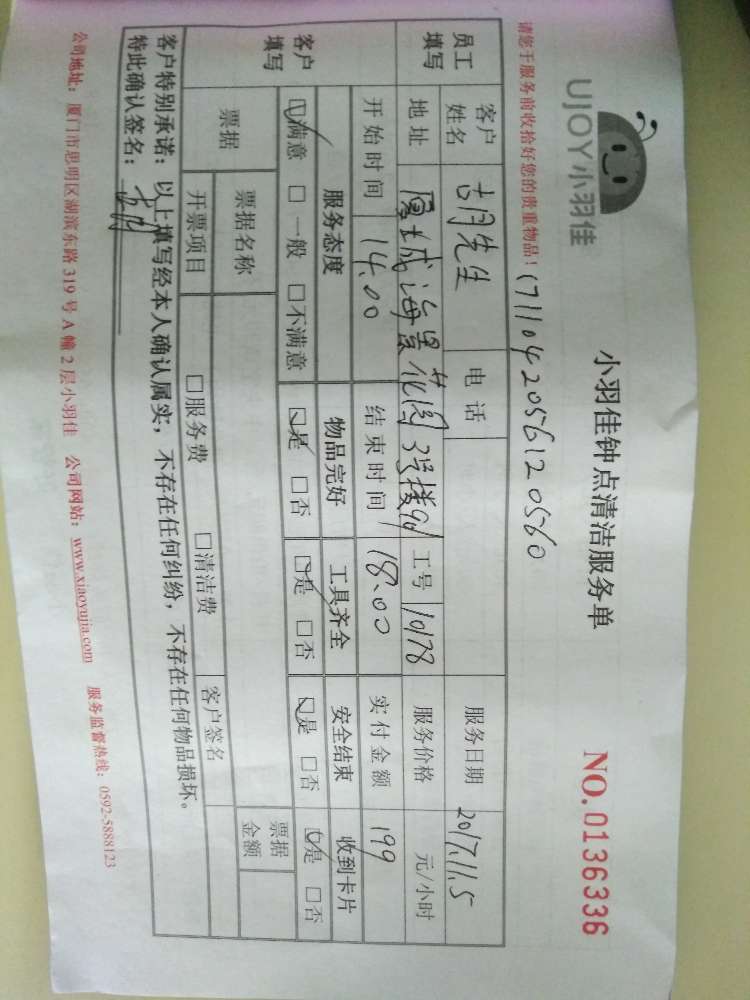 UJOY小羽佳
小羽佳钟点清洁服务单
NO.0136336
请您于服务前收拾好您的贵重物品！
171104205612 0560
员工填写 客户姓名 胡先生 电话 服务日期 2017.11.5
地址 厦城海景花园3号楼9d 工号 10178 服务价格 元/小时
开始时间 14.00 结束时间 18.00 实付金额 199
客户填写 服务态度 物品完好 工具齐全 安全结束 收到卡片
☑满意 □一般 □不满意 ☑是 □否 ☑是 □否 ☑是 □否 ☑是 □否
票据 票据名称 票据金额
开票项目 □服务费 □清洁费 客户签名
客户特别承诺：以上填写经本人确认属实，不存在任何纠纷，不存在任何物品损坏。
特此确认签名：
公司地址：厦门市思明区湖滨东路319号A幢2层小羽佳 公司网站：www.xiaoyujia.com 服务监督热线：0592-5888123